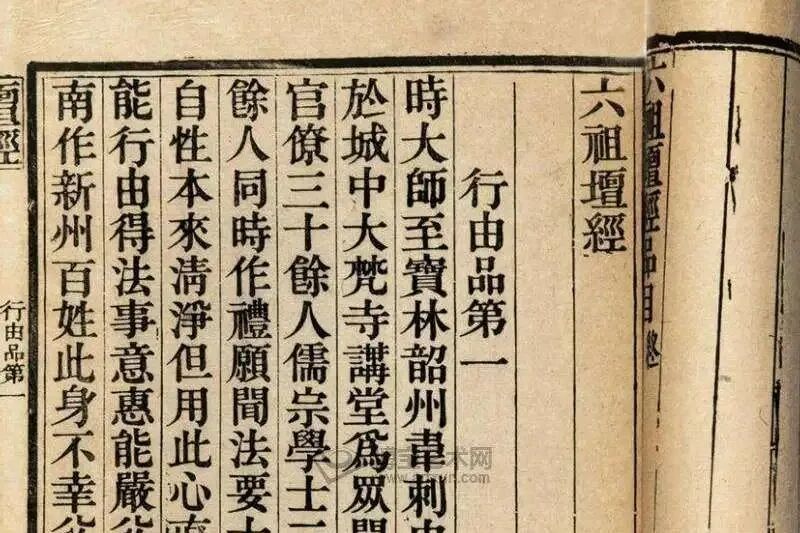 六祖壇經品目終
六祖壇經
行由品第一
時大師至寶林韶州韋刺史
於城中大梵寺講堂爲眾開
官僚三十餘人儒宗學士三
餘人同時作禮願聞法要大
自性本來清淨但用此心直
能行由得法事意惠能嚴父
南作新州百姓此身不幸父
壇經
行由品第一